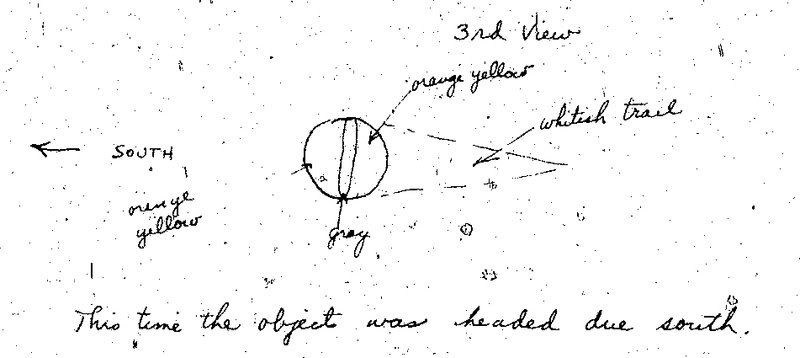 3rd View
orange yellow
whitish trail
SOUTH
orange
yellow
gray
This time the object was headed due south.